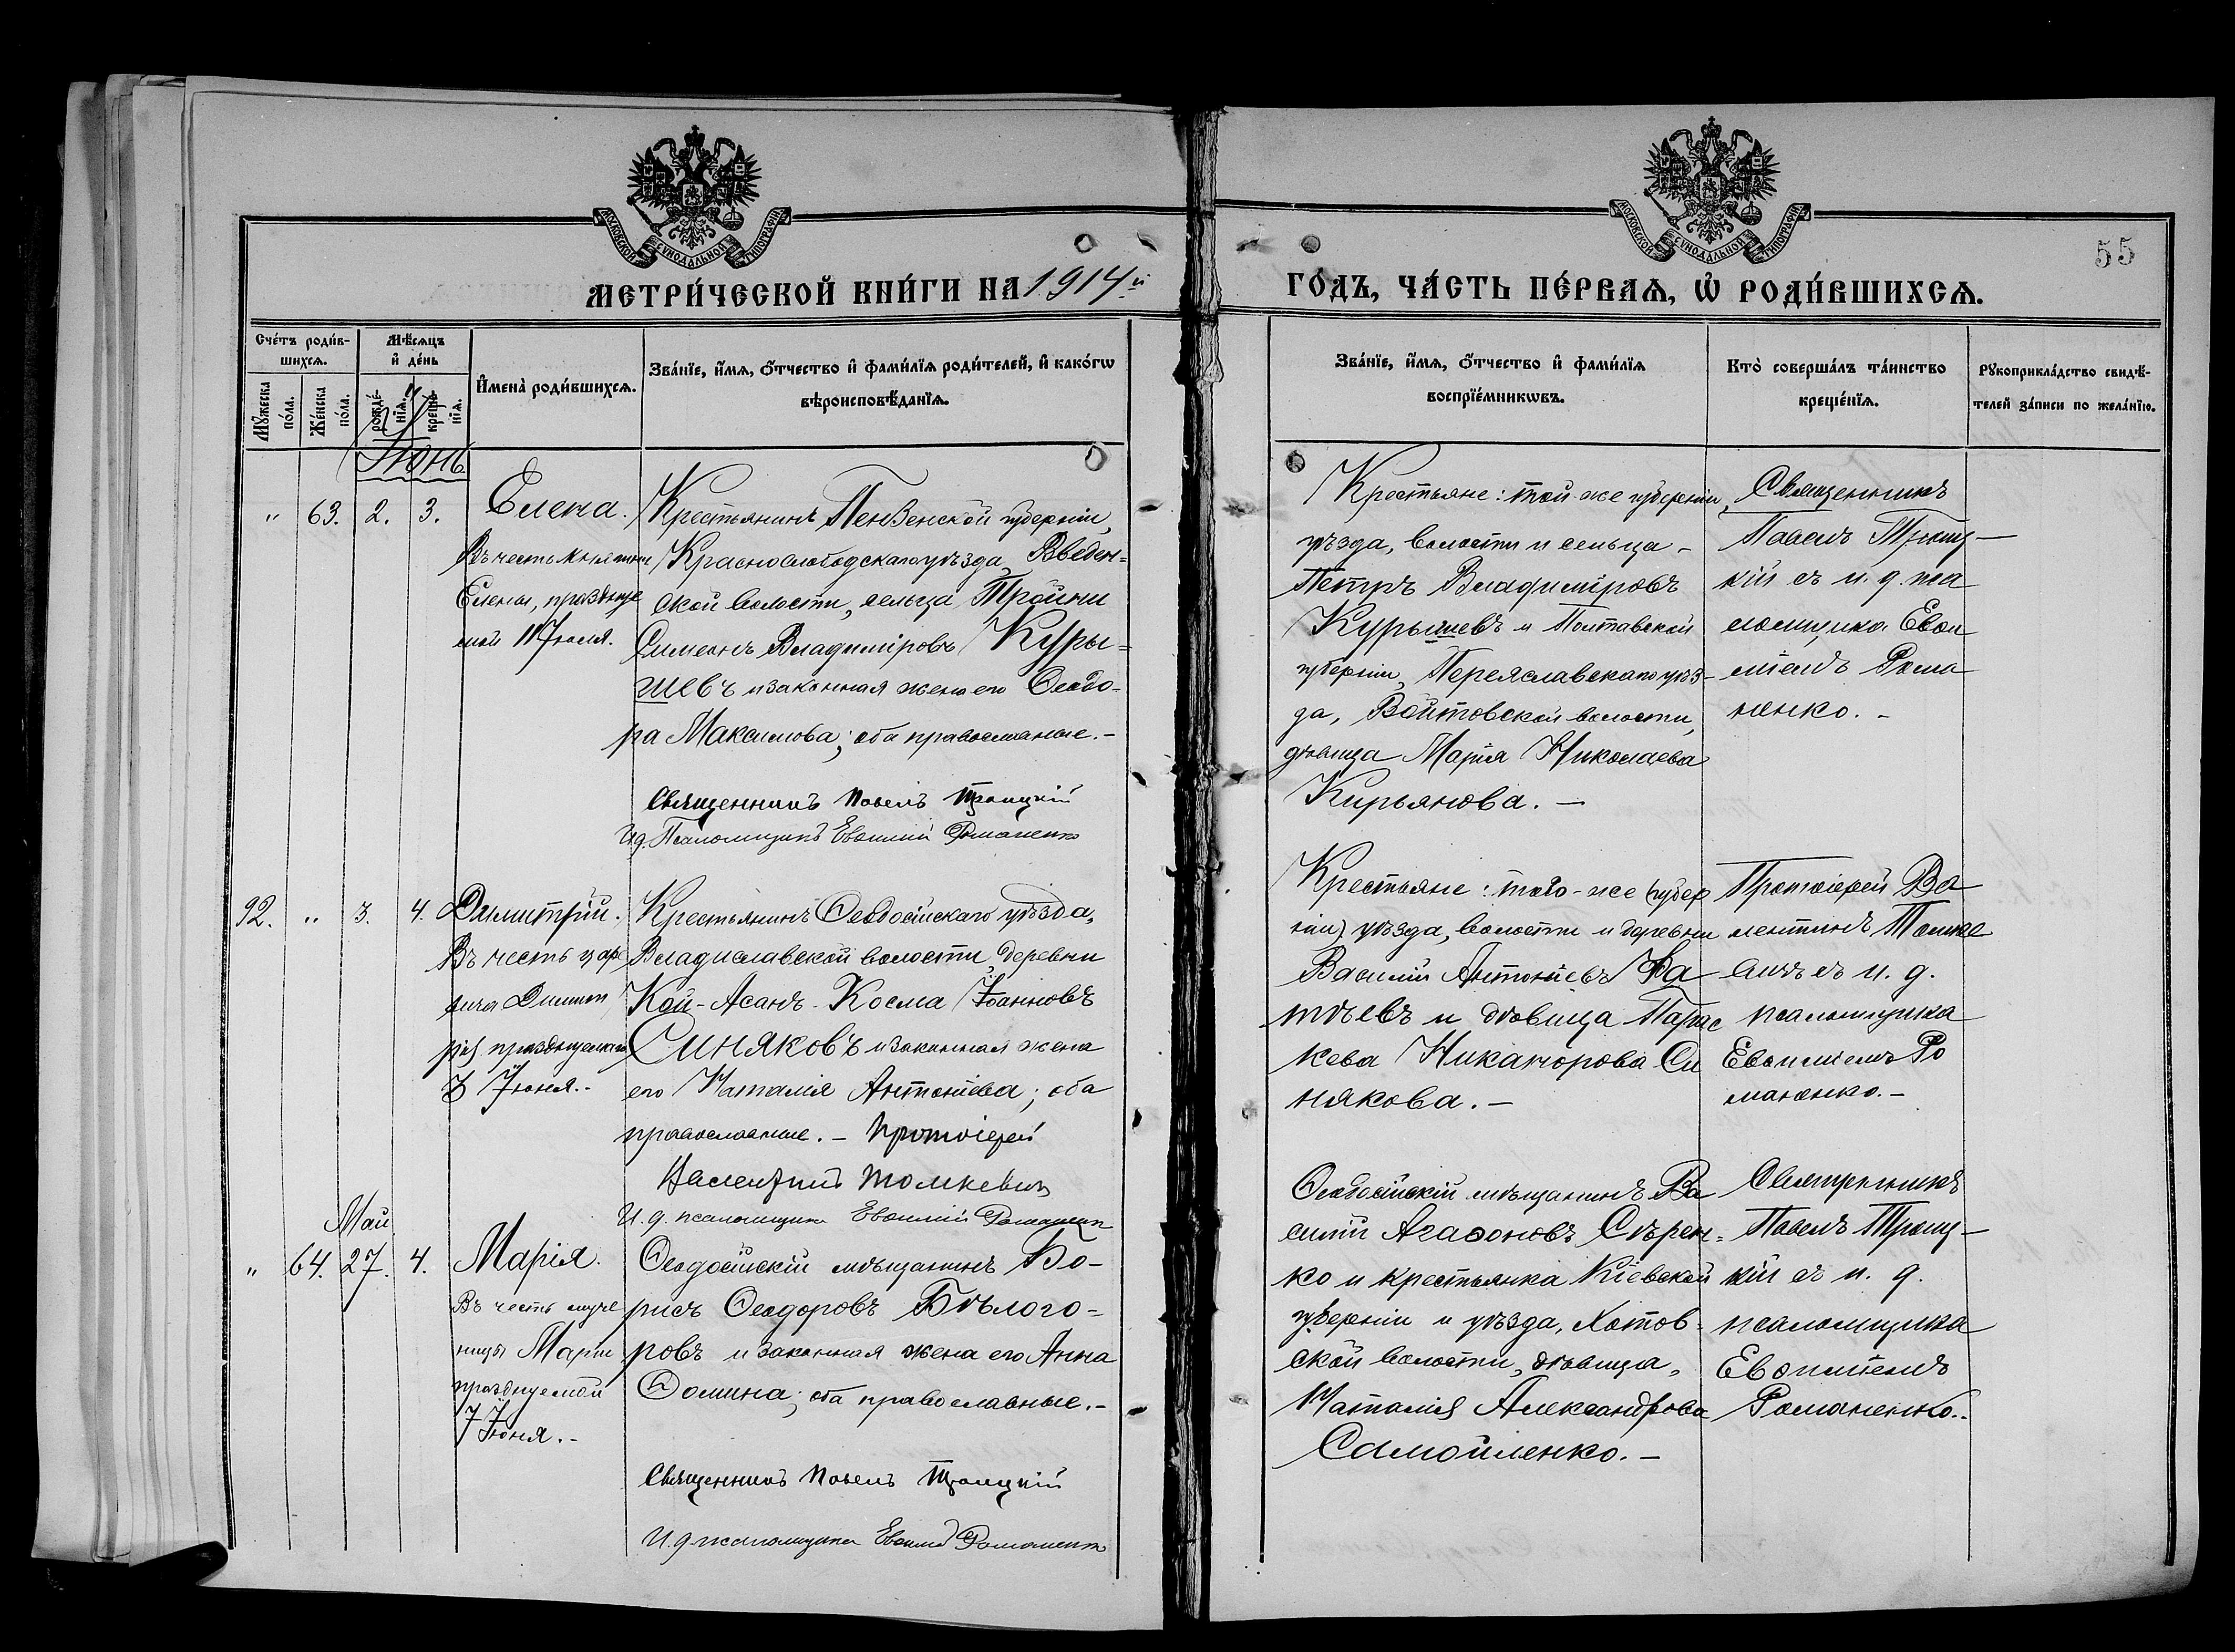 МОСКОВСКОЙ СѴНОДАЛЬНОЙ ТИПОГРАФІИ
МОСКОВСКОЙ СѴНОДАЛЬНОЙ ТИПОГРАФІИ
55
МЕТРИ́ЧЕСКОЙ КНИ́ГИ НА 1914й
ГО́ДЪ, ЧА́СТЬ ПЕ́РВАѦ, Ѡ҆ РОДИ́ВШИХСѦ.
Сче́тъ роди́в-
шихсѧ.
Мꙋ́жеска по́ла.
Же́нска по́ла.
Мѣ́сѧцъ
и҆ де́нь
рожде́-нїѧ.
креще́-нїѧ.
И҆мена̀ роди́вшихсѧ.
Зва́нїе, и҆́мѧ, ѻ҆́тчество и҆ фами́лїѧ роди́телей, и҆ како́гѡ
вѣроисповѣ́данїѧ.
Зва́нїе, и҆́мѧ, ѻ҆́тчество и҆ фами́лїѧ
воспрїе́мникѡвъ.
Кто̀ соверша́лъ та́инство
креще́нїѧ.
Рꙋкоприкла́дство свидѣ́-
телей за́писи по жела́нїю.
Іюнь
" 63. 2. 3.
Елена.
Въ честь княгини
Елены, празднуе
мой 11 Іюля.
Крестьянинъ Пензенской губерніи,
Краснослободскаго уѣзда, Введен=
ской волости, сельца Тройни
Симеонъ Владиміровъ Куры=
шевъ и законная жена его Ѳеодо-
ра Максимова; оба православные.-
Священникъ Павелъ Троицкій
И д. Псаломщика Евѳимій Романенко
Крестьяне: той-же губерніи,
уѣзда, волости и сельца -
Петръ Владиміровъ
Курышевъ и Полтавской
губерніи, Переяславскаго уѣз-
да, Войтовской волости,
дѣвица Марія Николаева
Кирьянова. -
Священникъ
Павелъ Троиц-
кій съ и. д. пса
ломщика Евѳи
міемъ Рома
ненко. -
92. " 3. 4.
Димитрій.
Въ честь царе
вича Димит
рія празднуемаго
3 Іюня.-
Крестьянинъ Ѳеодосійскаго уѣзда,
Владиславской волости деревни
Кой-Асанъ - Косма Іоанновъ
Синяковъ и законная жена
его Наталія Антоніева; оба
православные. - Протоіерей
Валентинъ Томкевичъ
И. д. псаломщика Евѳимій Романенк
Крестьяне: того-же (губер
ніи) уѣзда, волости и деревни
Василій Антоніевъ Фа
тѣевъ и дѣвица Парас
кева Никанорова Си
някова. -
Протоіерей Ва
лентинъ Томке
вичъ съ и. д.
псаломщика
Евѳиміемъ Ро
маненко. -
Май
" 64. 27. 4.
Марія.
Въ честь муче
ницы Маріи
празднуемой
7 Іюня. -
Ѳеодосійскій мѣщанинъ Бо-
рисъ Ѳеодоровъ Бѣлого=
ровъ и законная жена его Анна
Ѳомина; оба православные. -
Священникъ Павелъ Троицкій
И. д. псаломщика Евѳимій Романенко
Ѳеодосійскій мѣщанинъ Ва
силій Агаѳоновъ Сѣрен=
ко и крестьянка Кіевской
губерніи и уѣзда, Хотов=
ской волости, дѣвица,
Наталія Александрова
Самойленко. -
Священникъ
Павелъ Троиц-
кій съ и. д.
псаломщика
Евѳиміемъ
Романенко. -